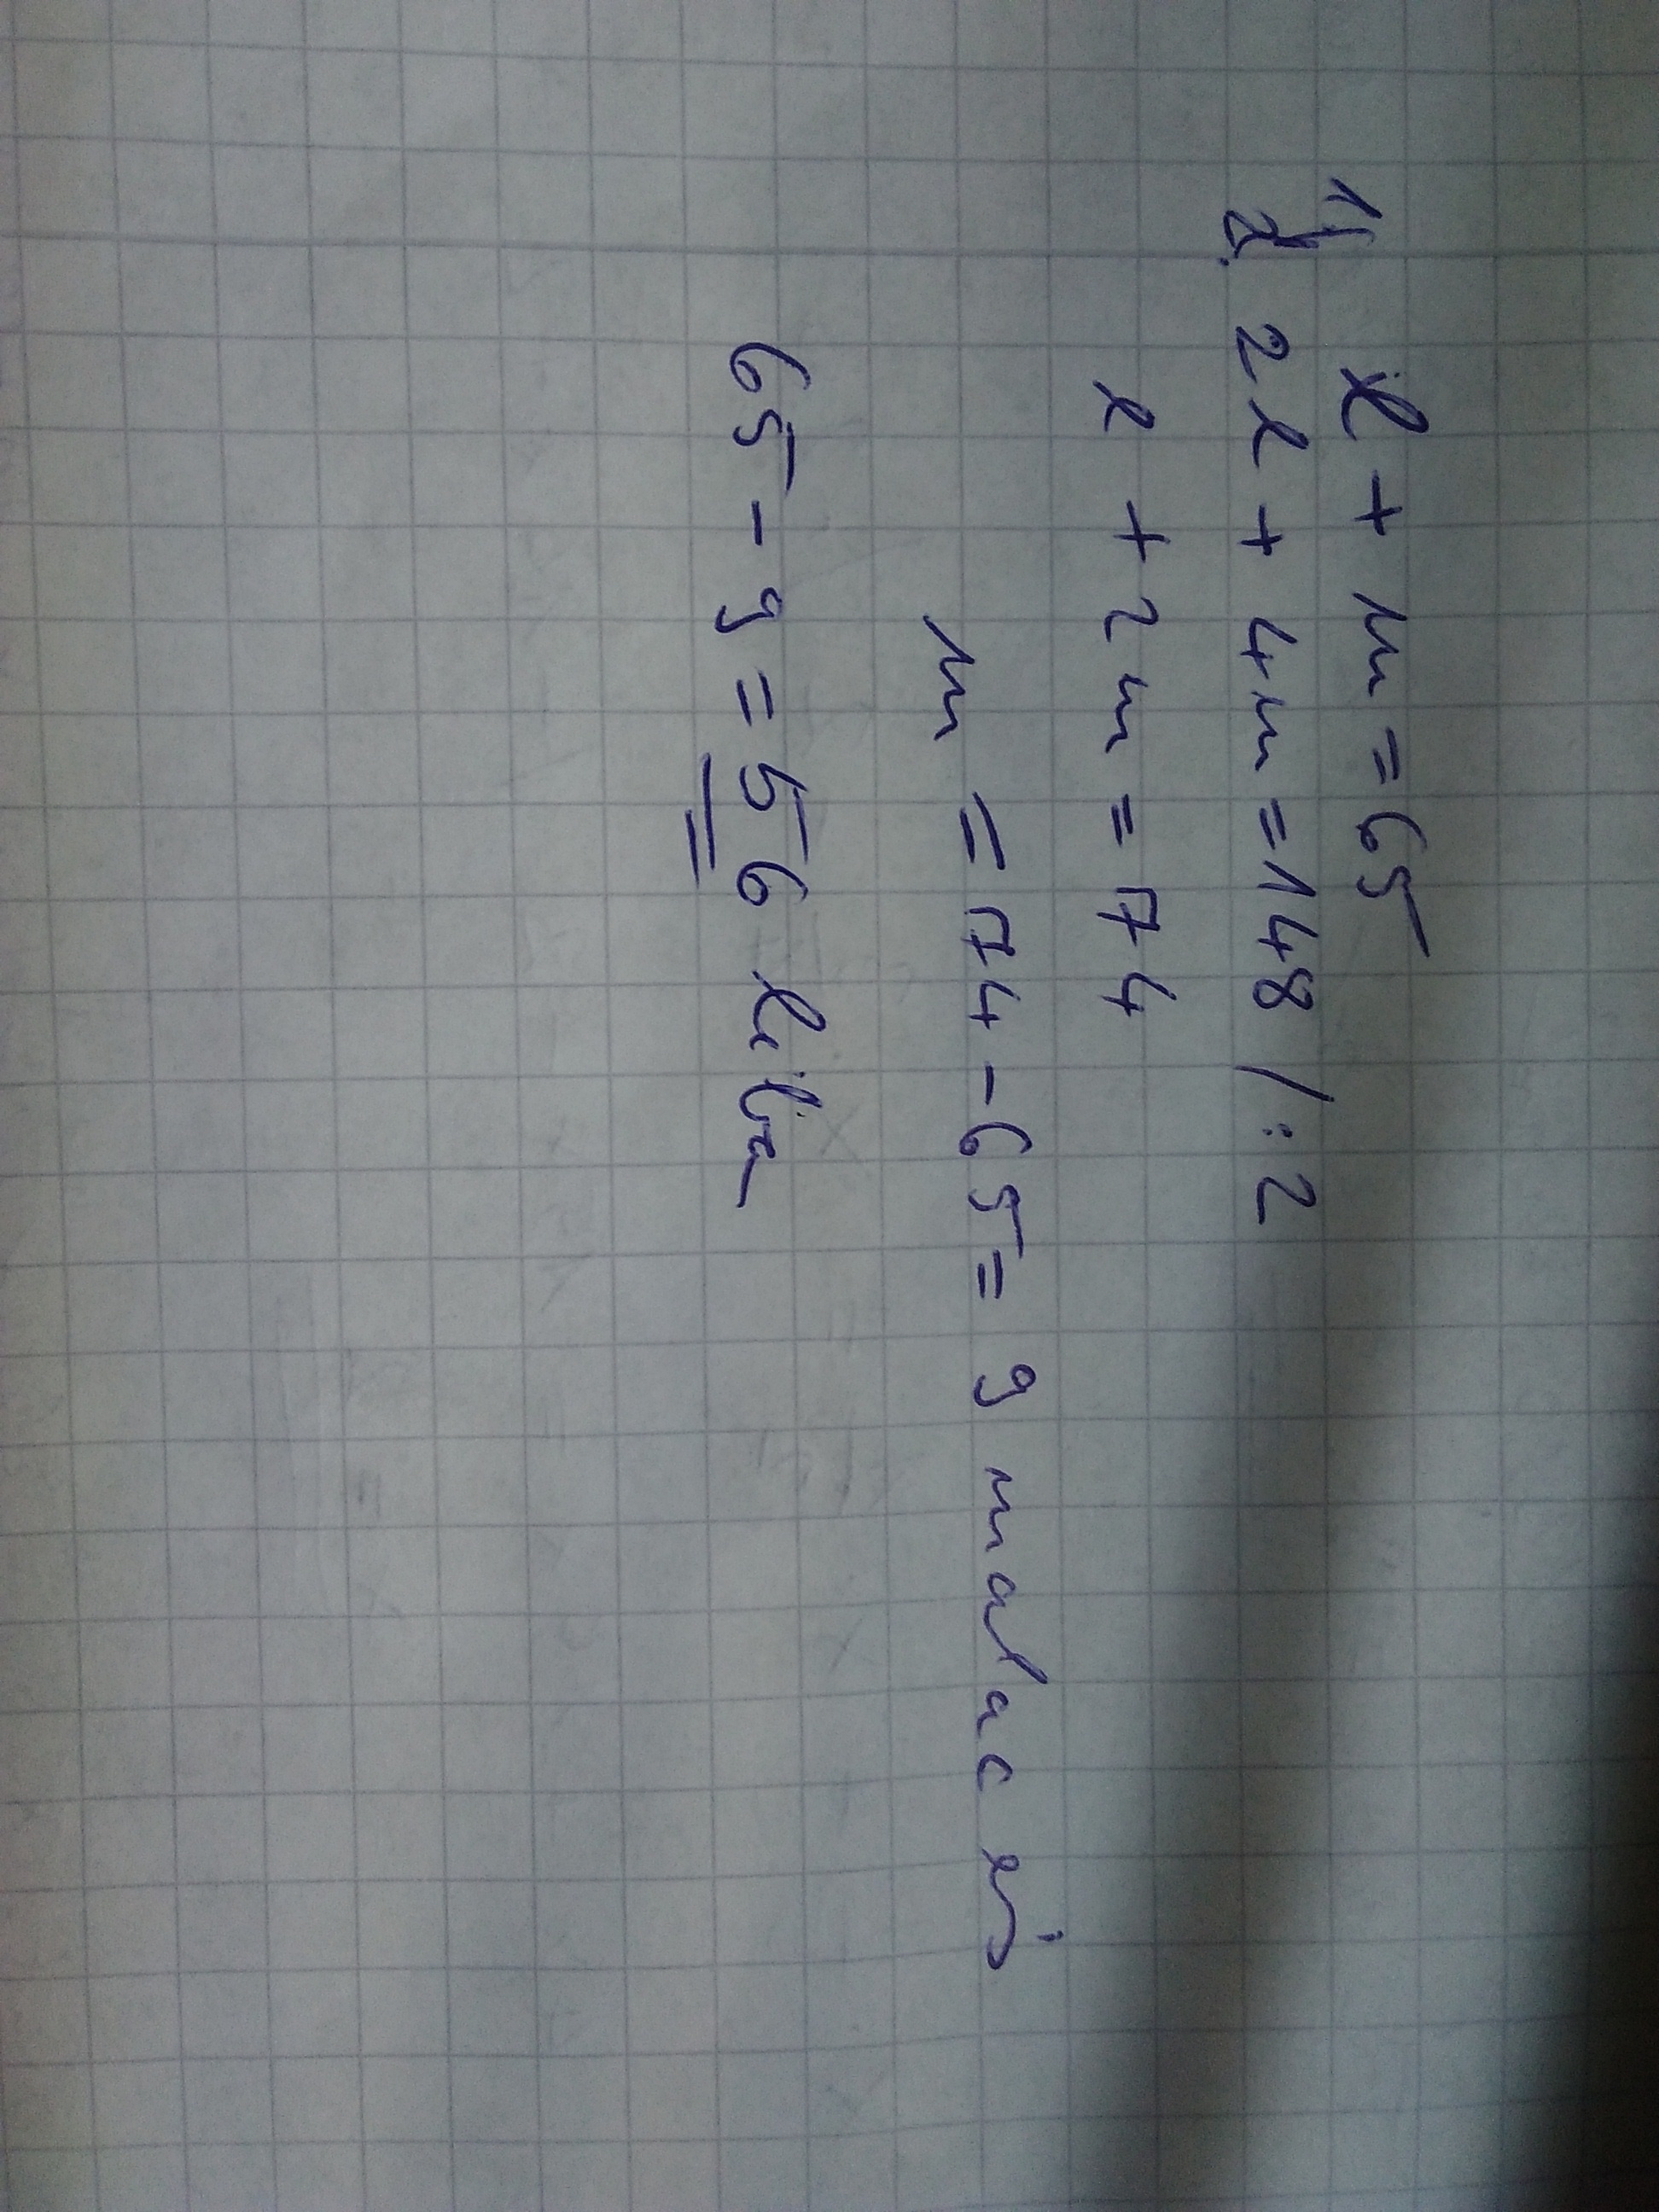 1, l + m = 65
2. 2l + 4m = 148 / : 2
l + 2m = 74
m = 74 - 65 = 9 malac és
65 - 9 = 56 liba